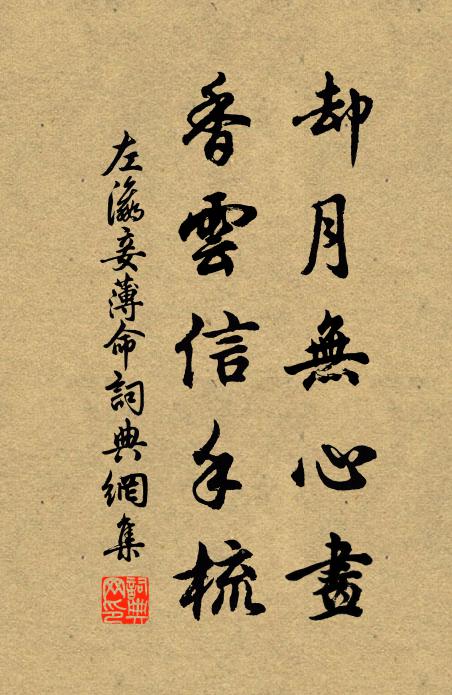 却月無心畫
香雲信手梳
左瀛妾薄命詞典網集
詞典网印